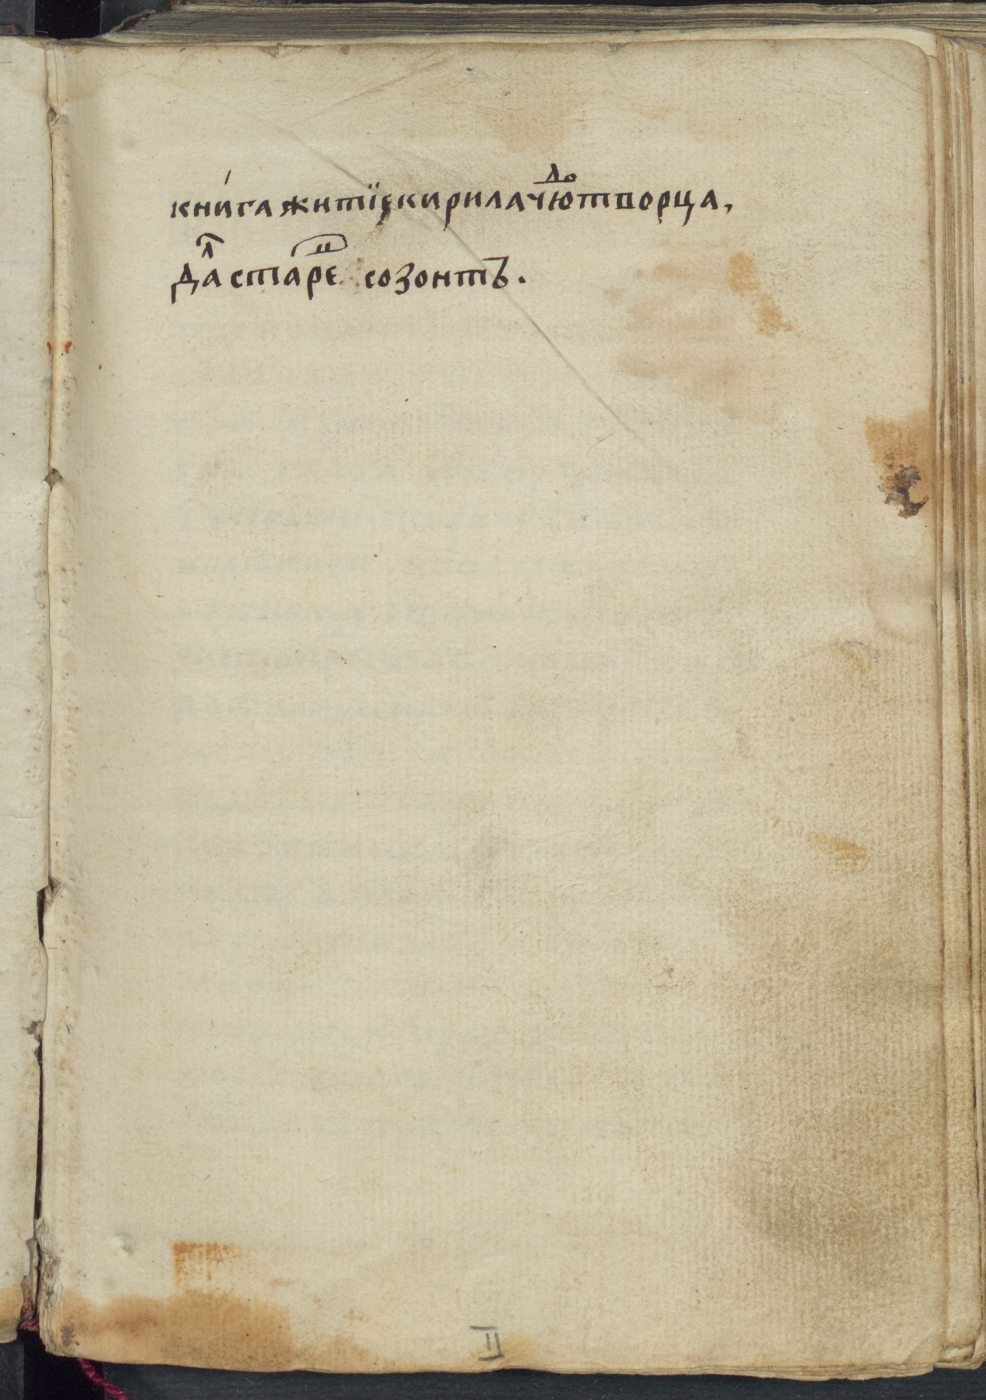 кни́га житїе кирила чю̑ⷣтворца,
даⷧ҇ старе​ⷰ҇ созонтъ.
II